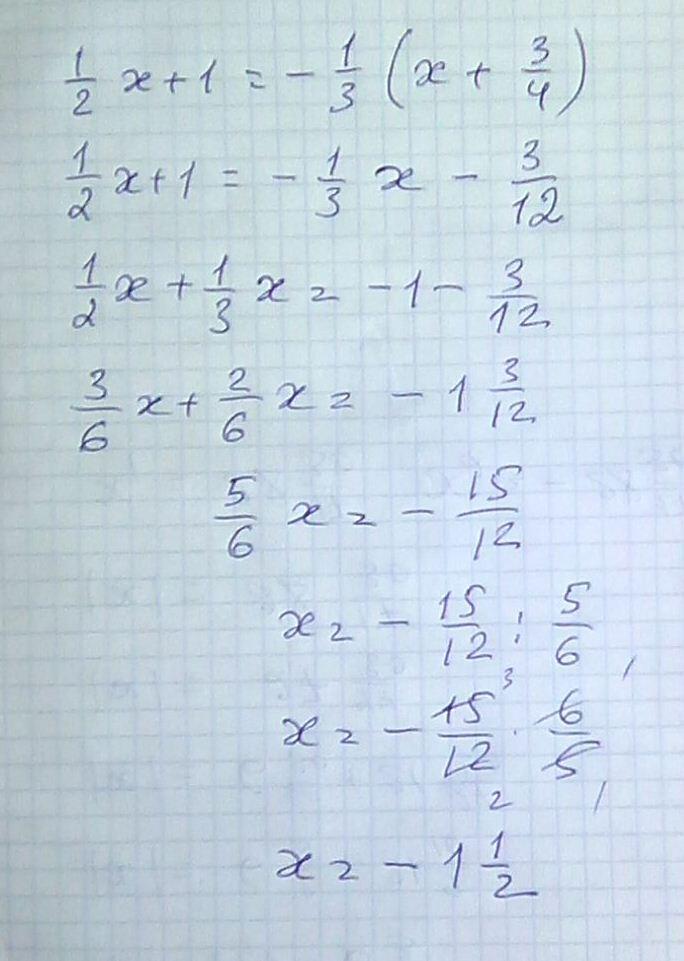 1/2 x + 1 = - 1/3 (x + 3/4)
1/2 x + 1 = - 1/3 x - 3/12
1/2 x + 1/3 x = -1 - 3/12
3/6 x + 2/6 x = - 1 3/12
5/6 x = - 15/12
x = - 15/12 : 5/6
x = - 15/12 · 6/5
x = - 1 1/2